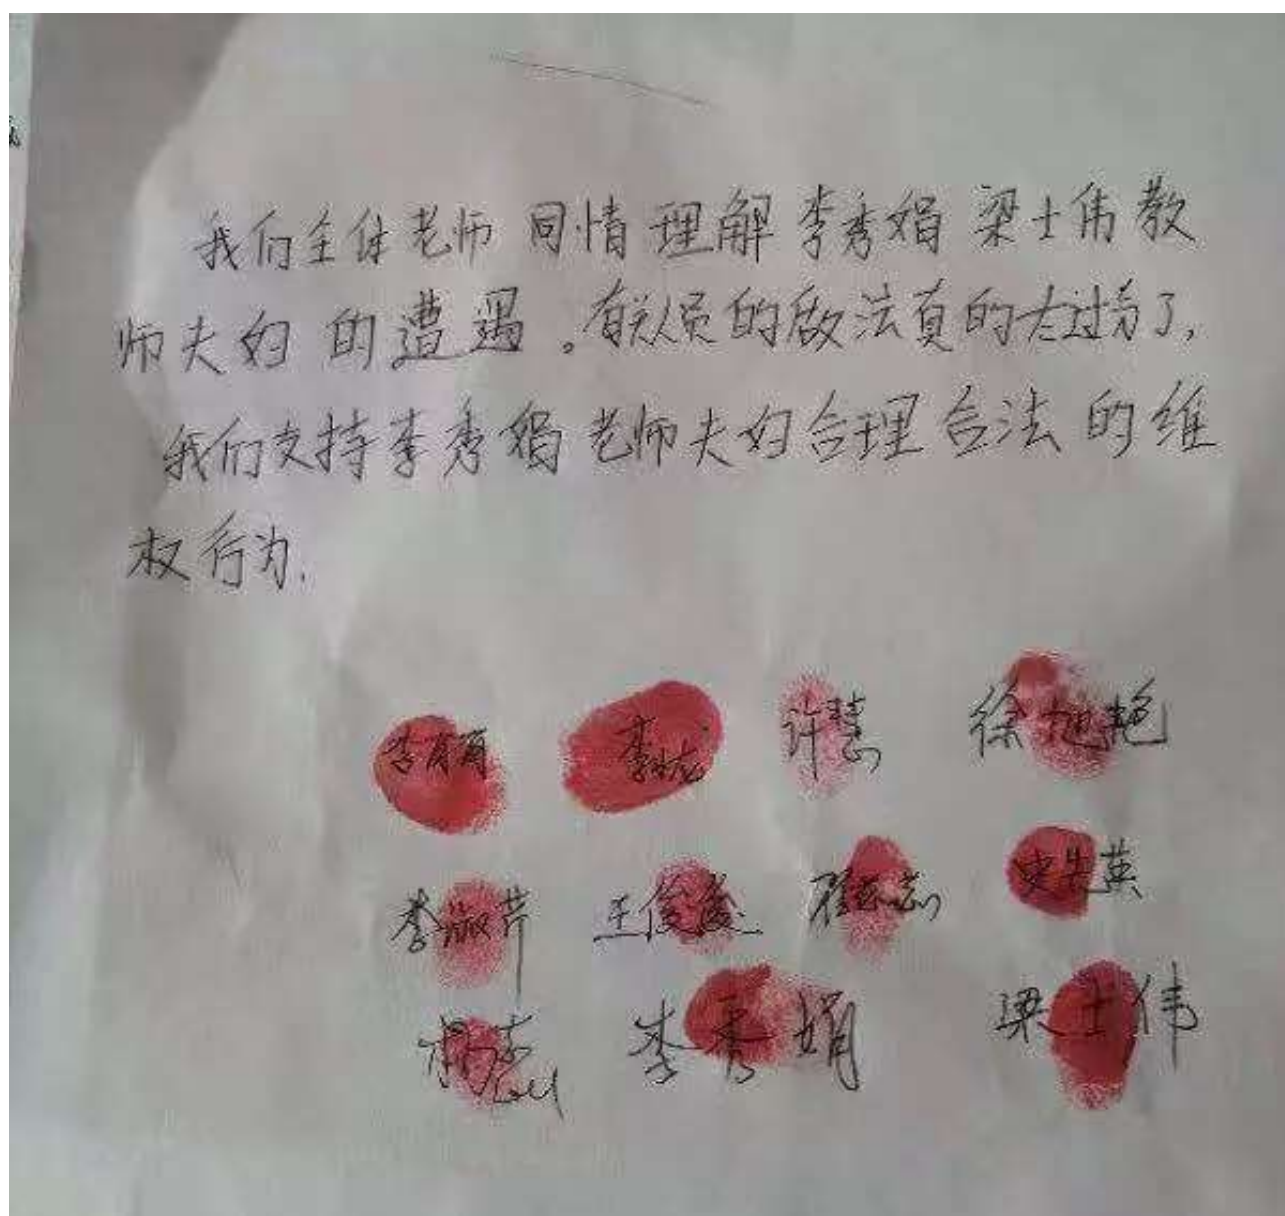 我们全体老师 同情 理解 李秀娟 梁士伟教
师夫妇 的遭遇。有关人员的做法真的太过分了,
我们支持李秀娟 老师夫妇合理合法 的维
权行为.
许慧 徐旭艳
李淑芹 王俊俊 史先英
李秀娟 梁士伟